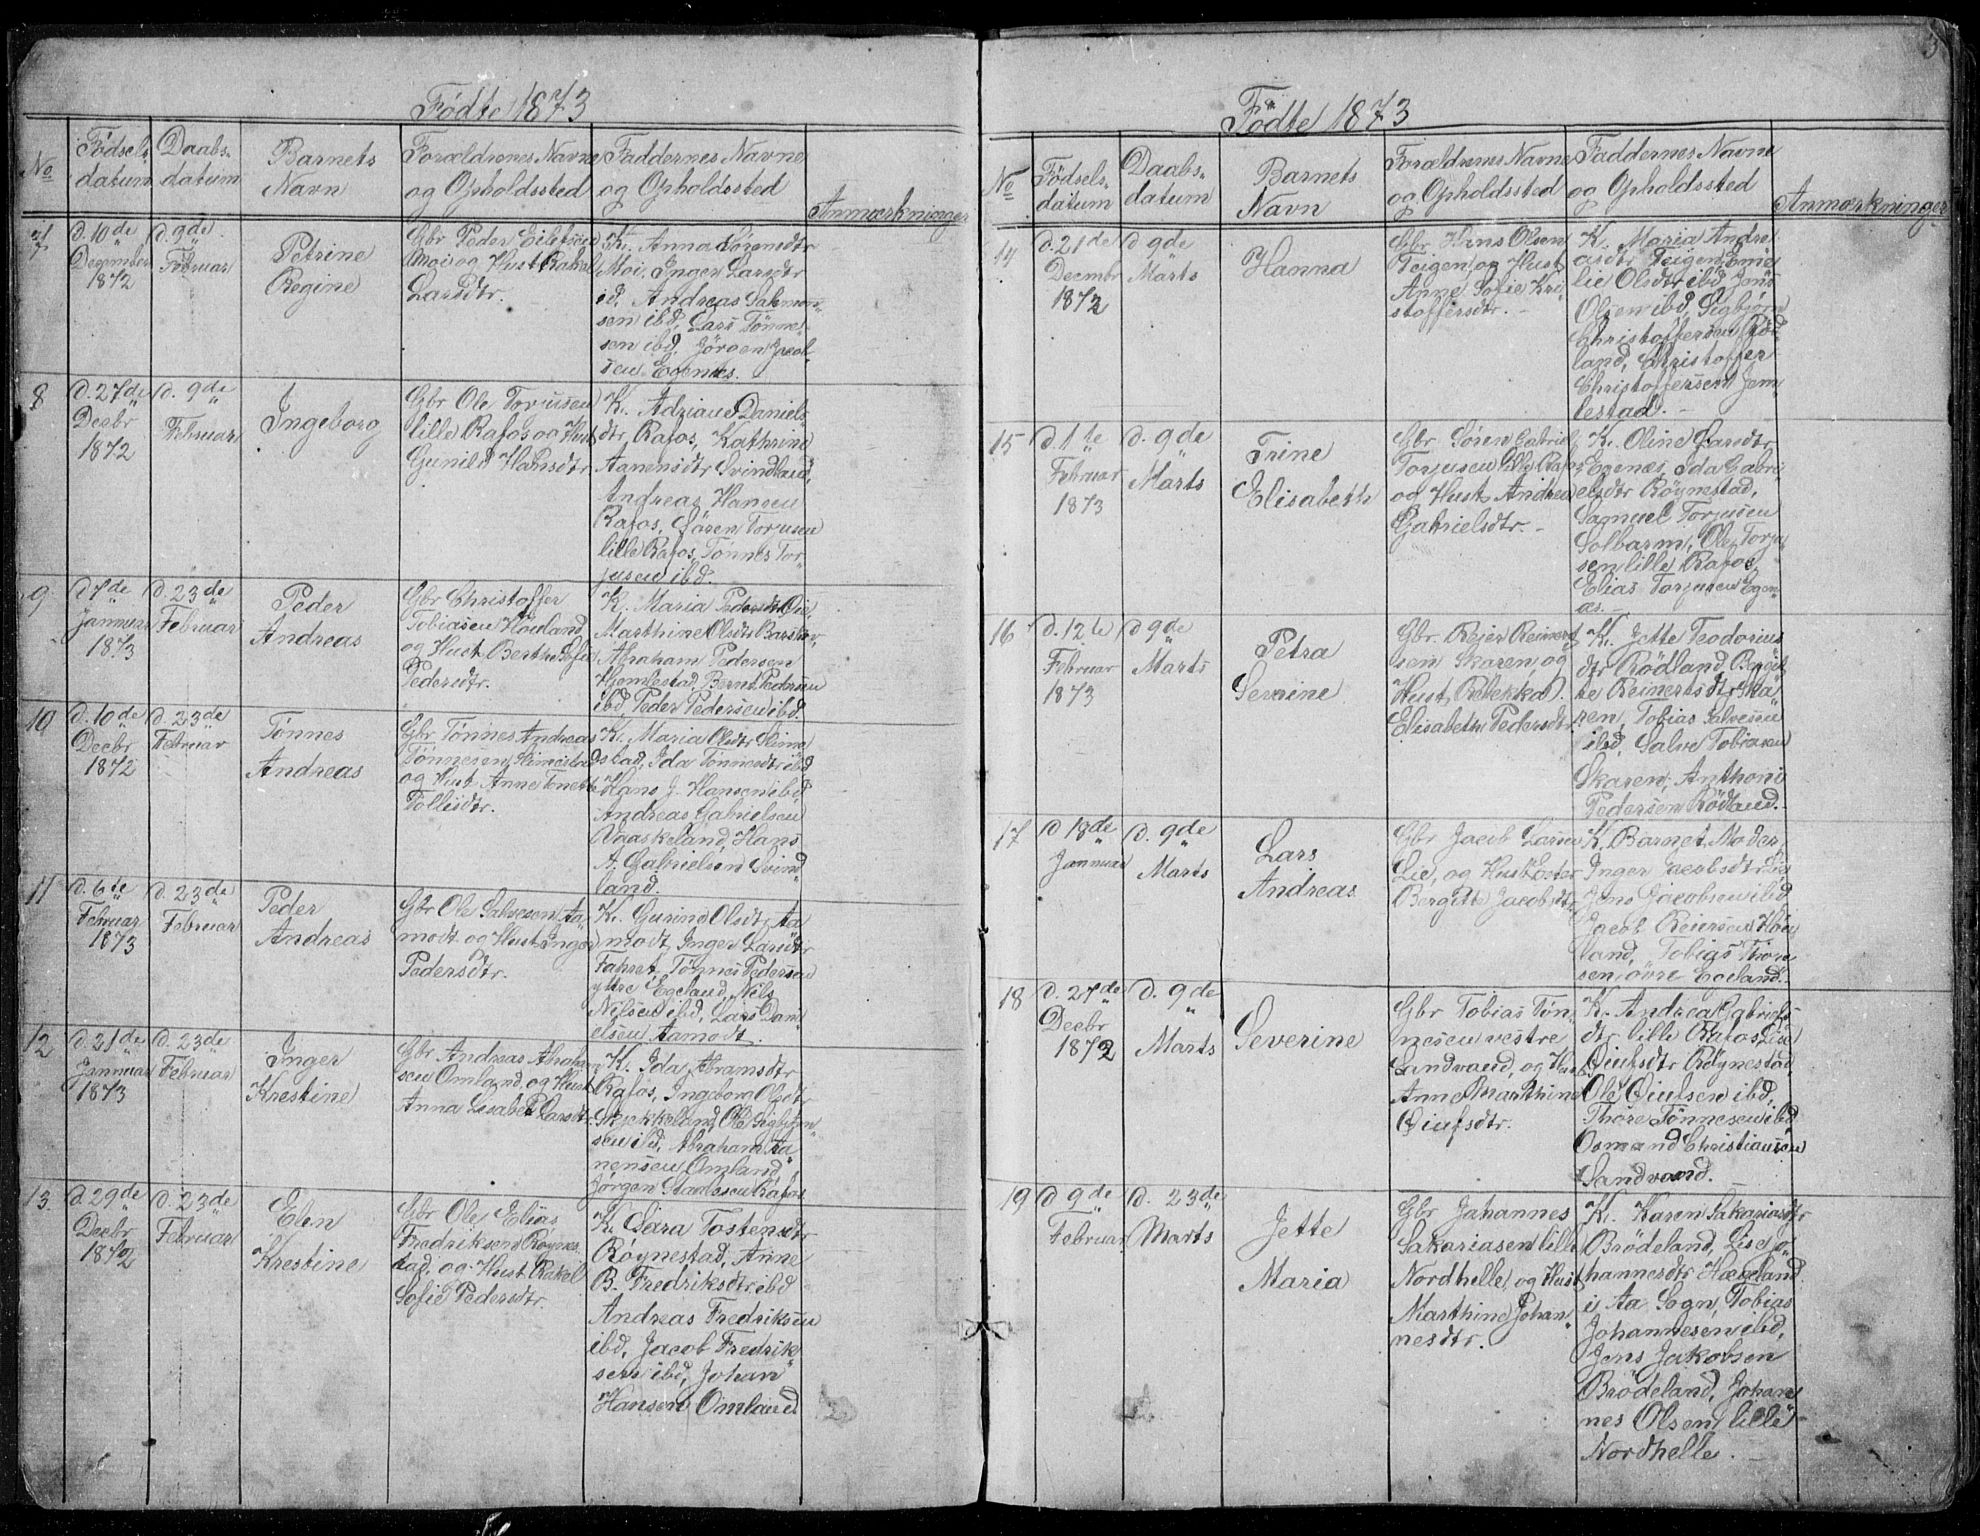 Fødte 1873
No
Fødsels-
datum
Daabs-
datum
Barnets
Navn
Forældrenes Navne
og Opholdssted
Faddernes Navne
og Opholdssted
Anmærkninger
7
d. 10de
December
1872
d. 9de
Februar
Petrine
Regine
Gbr Peder Eilefsen
Moi og Hust Rakel
Larsdtr.
K. Anna Sørensdtr
Moi, Inger Larsdtr
id, Andreas Salmon-
sen ibd, Lars Tønne-
sen ibd. Jörgen Jacob-
sen Egenæs.
8
d. 27de
Decbr
1872
d. 9de
Februar
Ingeborg
Gbr Ole Torjusen
lille Rafos og Hust
Gunild Hansdtr
K. Adriane Daniels-
dtr, Rafos, Kathrine
Aanensdtr Svindland,
Andreas Hansen
Rafos, Sören Torjusen
lille Rafos, Tønnes Tor-
jusen ibd.
9
d 7de
Januar
1873
d. 23de
Februar
Peder
Andreas
Gbr Christoffer
Tobiasen Höuland,
og Hust Berthe Sofie
Pedersdtr.
K. Maria Pedersdtr Oie,
Marthine Olsdtr
Abraham Pedersen
Hjemlestad, Bernt Pedersen
ibd Peder Pedersen ibd.
10
d. 10de
Decbr
1872
d. 23de
Februar
Tønnes
Andreas
Gbr Tønnes Andreas
Tönnesen Slimestad
og Hust Anne Tonette
Tollisdtr.
K. Maria Olsdtr Slime
stad, Ida Tönnesdtr ibd
Hans J. Hansen ibd,
Andreas Gabrielsen
Vaaskeland, Hans
A. Gabrielsen Svind
land.
11
d. 6te
Februar
1873
d. 23de
Februar
Peder
Andreas
Gbr Ole Salvesen Aa
modt og Hust Inger
Pedersdtr.
K. Gurine Olsdtr, Aa
modt, Inger Larsdtr
Fahret, Tönnes Pedersen
ytre Egeland, Nils
Nilsen ibd, Lars Dani
elsen Aamodt.
12
d. 21de
Januar
1873
d. 23de
Februar
Inger
Krestine
Gbr Andreas Abraham
sen Omland, og Hust
Anna Lisabet Larsdtr.
K. Ida Abramsdtr
Rafos, Ingeborg Olsdtr
Skjekkeland, Ole Sigbjörn-
sen ibd, Abraham Aa
nensen Omland,
Jørgen Rafos.
13
d. 29de
Decbr
1872
d. 23de
Februar
Elen
Krestine
Gbr Ole Elias
Fredriksen Röynes
tad, og Hust Rakel
Sofie Pedersdtr.
K. Sara Tostensdtr
Röynestad, Anne
B. Fredriksdtr ibd
Andreas Fredriksen
ibd, Jacob Fredrik
sen ibd, Johan
Hansen Omland
3
Fødte 1873
No
Födsels-
datum
Daabs-
datum
Barnets
Navn
Forældrenes Navne
og Opholdssted
Faddernes Navne
og Opholdssted
Anmærkninger
14
d. 21de
Decmbr
1872
d 9de
Marts
Hanna
Gbr Hans Olsen
Teigen og Hust
Anne Sofie Kri
stoffersdtr.
K. Maria Andre
asdtr Teigen, Eme
lie Olsdtr ibd Jens
Olsen ibd, Sigbjørn
Christoffersen Röd
land, Christoffer
Christoffersen Jem
lestad.
15
d. 1te
Februar
1873
d. 9de
Marts
Trine
Elisabeth
Gbr Sören Gabriel
Torjusen lille Rafos
og Hust Andrea
Gabrielsdtr.
K. Oline Larsdtr
Egenæs, Ida Gabri
elsdtr Röynestad,
Samuel Torjusen
Solbarm, Ole Torju
sen lille Rafos,
Elias Torjusen Egen
æs.
16
d. 12te
Februar
1873
d 9de
Marts
Petra
Severine
Gbr. Reier Reinert
sen Skaren og
Hust Rebekka
Elisabeth Pedersdtr.
K. Jette Teodorius
dtr Rödland, Bergit
te Reinertsdtr Ska
ren, Tobias Salvesen
ibd, Salve Tobiasen
Skaren, Anthoni
Pedersen Rödland.
17
d 18de
Januar
d. 9de
Marts
Lars
Andreas
Gbr Jacob Larsen
Lie, og Hust Ester
Bergitte Jacobsdtr
K. Barnet Moder,
Inger Jacobsdtr Lie
Jens Jacobsen ibd
Jacob Reiersen Höu
land, Tobias Thom
sen övre Egeland.
18
d. 27de
Decbr
1872
d. 9de
Marts
Severine
Gbr Tobias Tön-
nesen vestre
Sandvand, og Hust
Anne Marthine
Oiufsdtr.
K. Andrea Gabriels-
dtr lille Rafos, Lise
Oiufsdtr Röynestad,
Ole Oiufsen ibd,
Thore Tönnesen ibd
Osmand Christiansen
Sandvand.
19
d 9de
Februar
d. 23de
Marts
Jette
Maria
Gbr Johannes
Sakariasen lille
Nordhelle, og Hust
Marthine Johan-
nesdtr.
K. Karen Sakariasdtr
Brödeland, Lise Jo
hannesdtr Hægeland
i Aa Sogn, Tobias
Johannesen ibd,
Jens Jakobsen
Brödeland, Johan
nes Olsen, lille
Nordhelle.